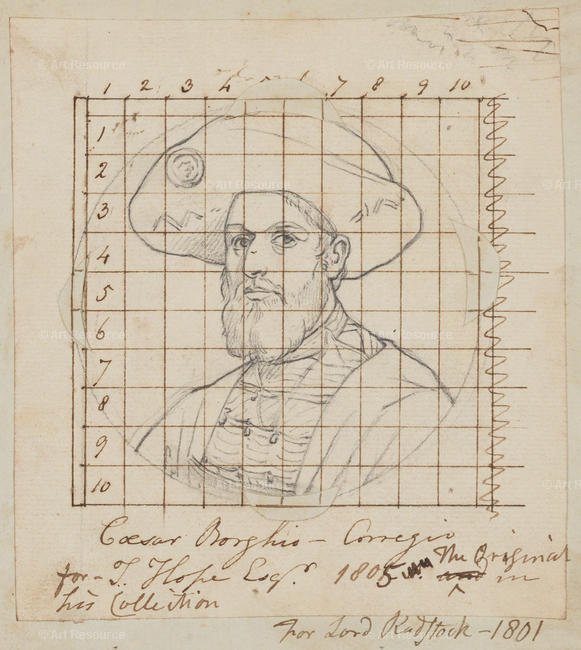 1 2 3 4 7 8 9 10
1
2
3
4
5
6
7
8
9
10
Cæsar Borghio – Corregio
for – T. Hope Esqr. 1805 The Original
in
his Collection
for Lord Radstock – 1801
© Art Resource